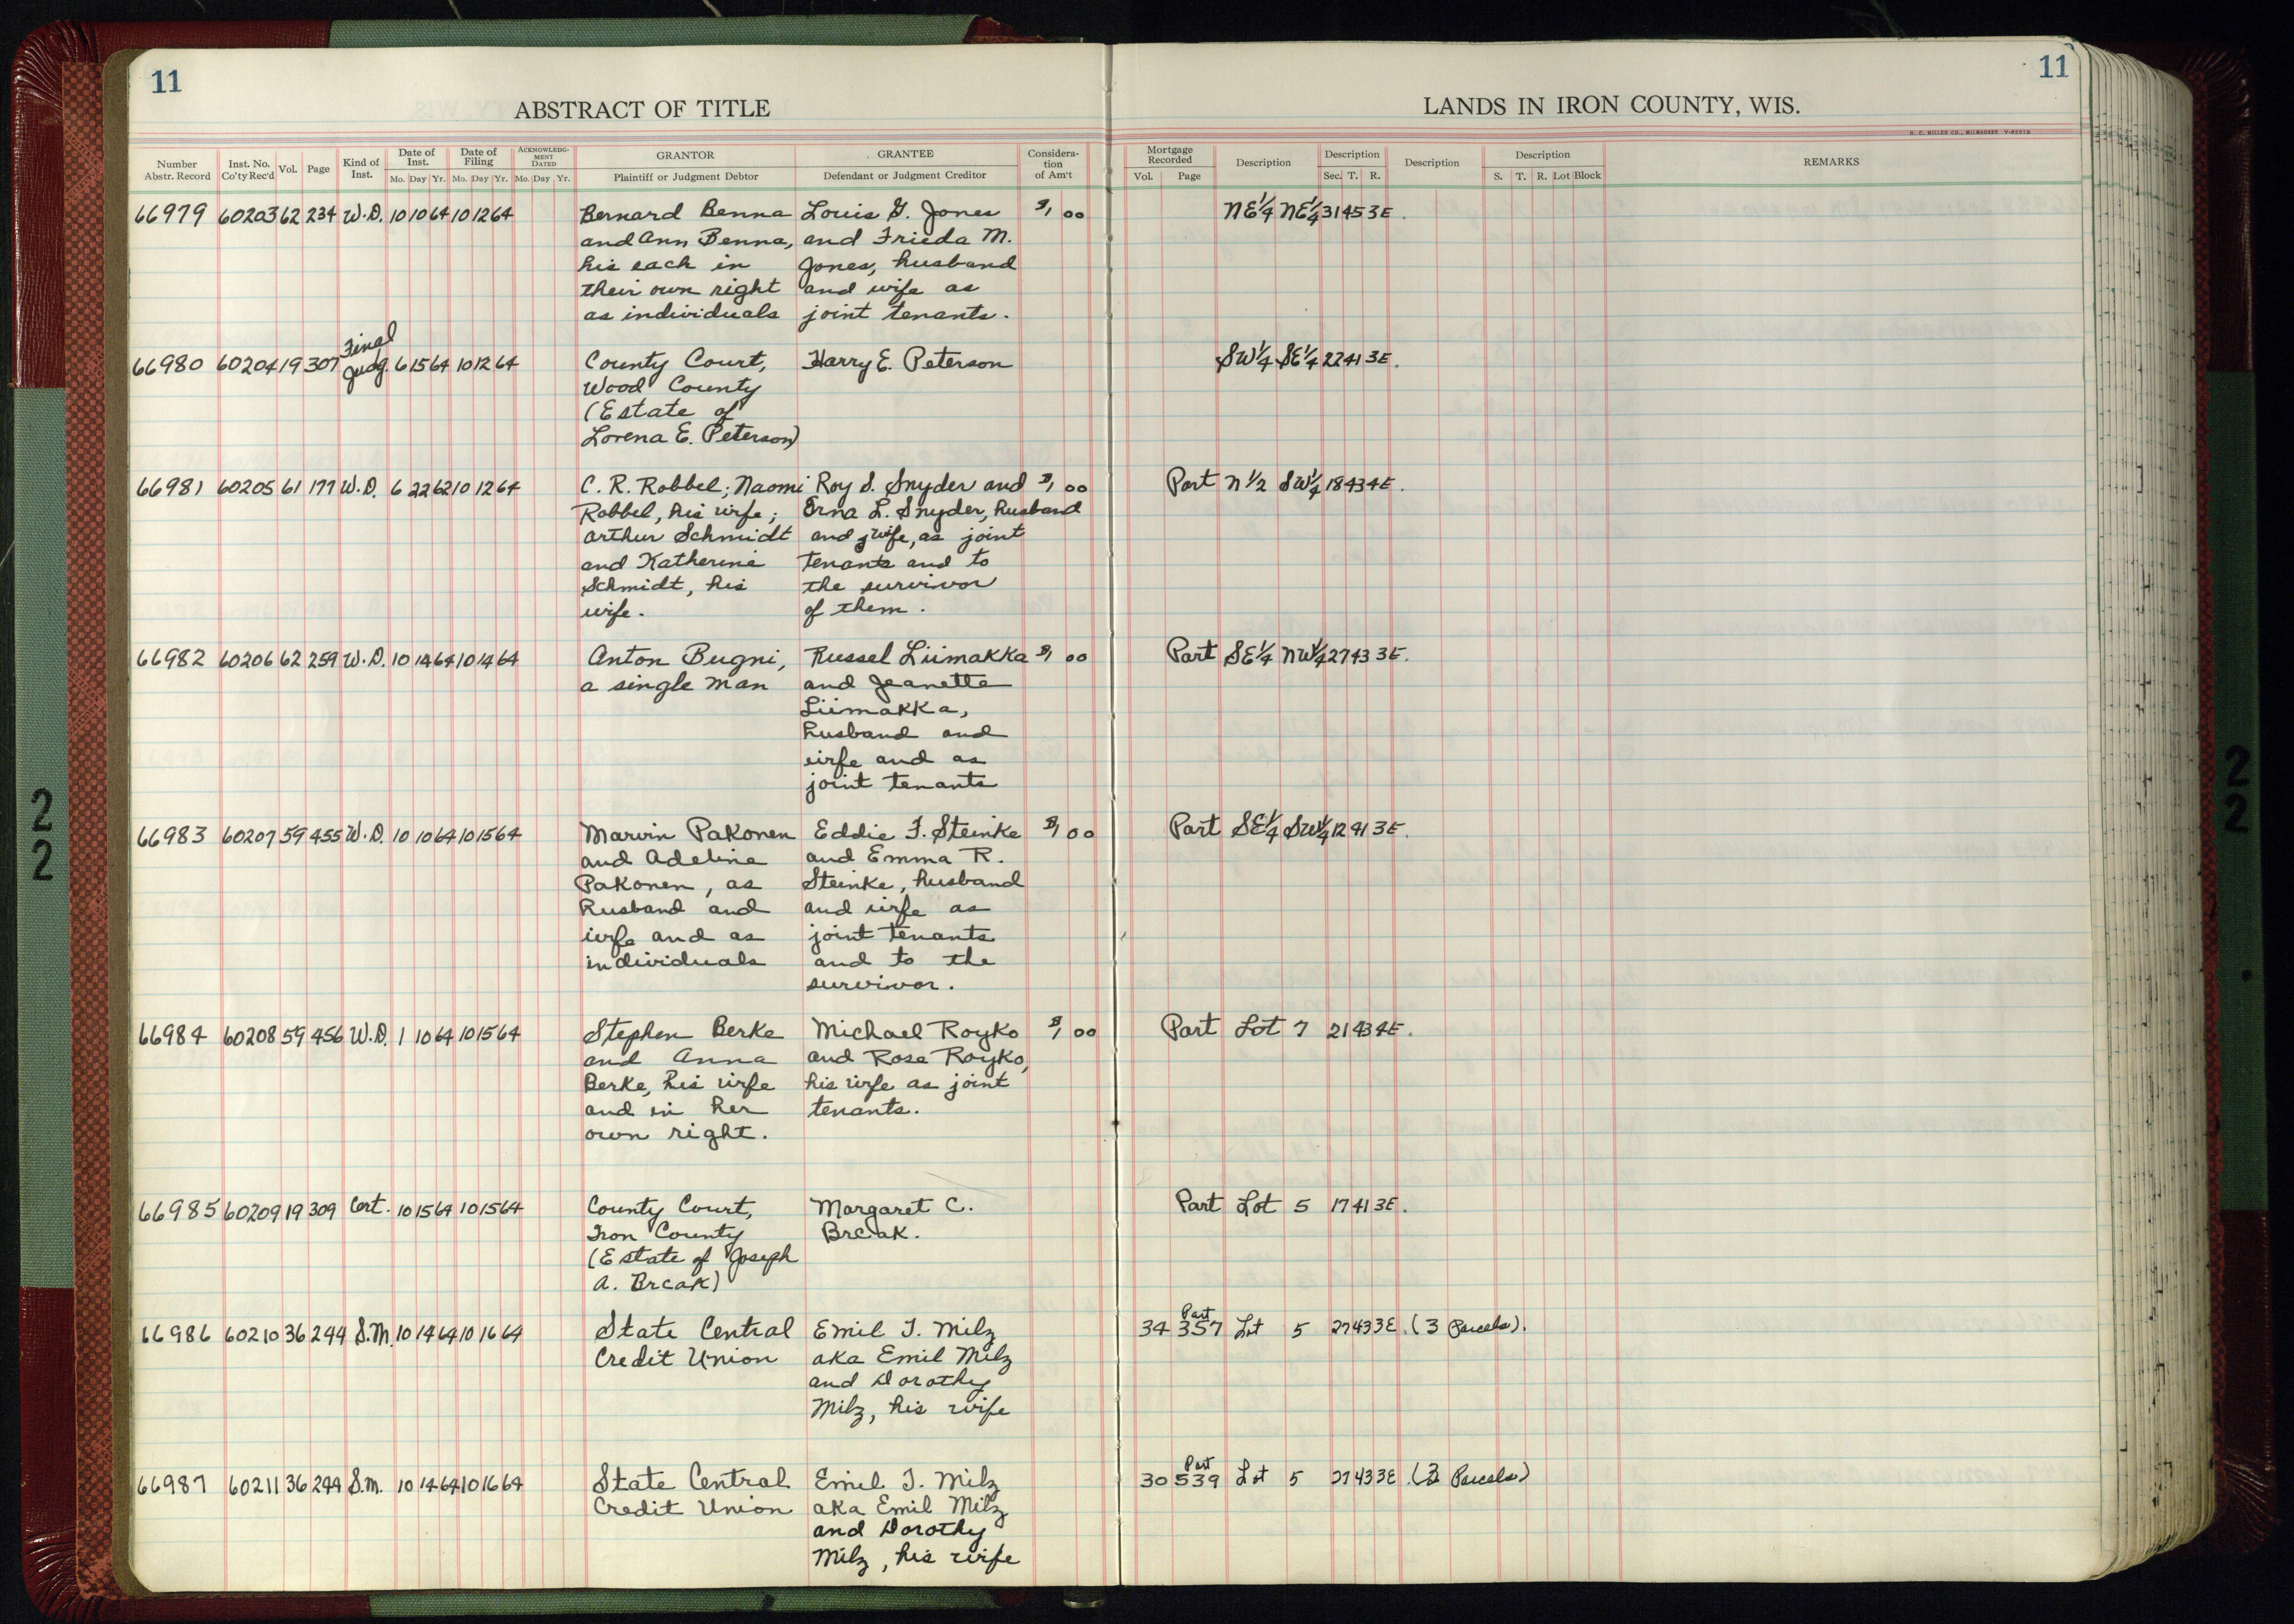 11
11
ABSTRACT OF TITLE
LANDS IN IRON COUNTY, WIS.
H. C. MILLER CO., MILWAUKEE
Number Abstr. Record | Inst. No. Co'ty Rec'd | Vol. | Page | Kind of Inst. | Date of Inst. Mo. Day Yr. | Date of Filing Mo. Day Yr. | ACKNOWLEDGMENT DATED Mo. Day Yr. | GRANTOR Plaintiff or Judgment Debtor | GRANTEE Defendant or Judgment Creditor | Consideration of Am't | Mortgage Recorded Vol. Page | Description | Description Sec. T. R. | Description | Description S. T. R. Lot Block | REMARKS
66979 60203 62 234 W.D. 10 10 64 10 12 64 Bernard Benna Louis G. Jones $1 00 NE1/4 NE1/4 31 45 3E.
and Ann Benna, and Frieda M.
his each in Jones, husband
their own right and wife as
as individuals joint tenants.
66980 60204 19 307 Final Judg. 6 15 64 10 12 64 County Court, Harry E. Peterson SW1/4 SE1/4 22 41 3E.
Wood County
(Estate of
Lorena E. Peterson)
66981 60205 61 177 W.D. 6 22 62 10 12 64 C. R. Robbel; Naomi Roy S. Snyder and $1 00 Part N1/2 SW1/4 18 43 4E.
Robbel, his wife; Erna L. Snyder, husband
Arthur Schmidt and wife, as joint
and Katherine tenants and to
Schmidt, his the survivor
wife. of them.
66982 60206 62 259 W.D. 10 14 64 10 14 64 Anton Bugni, Russel Liimakka $1 00 Part SE1/4 NW1/4 27 43 3E.
a single man and Jeanette
Liimakka,
husband and
wife and as
joint tenants
66983 60207 59 455 W.D. 10 10 64 10 15 64 Marvin Pakonen Eddie F. Steinke $1 00 Part SE1/4 SW1/4 12 41 3E.
and Adeline and Emma R.
Pakonen, as Steinke, husband
husband and and wife as
wife and as joint tenants
individuals and to the
survivor.
66984 60208 59 456 W.D. 1 10 64 10 15 64 Stephen Berke Michael Royko $1 00 Part Lot 7 21 43 4E.
and Anna and Rose Royko,
Berke, his wife his wife as joint
and in her tenants.
own right.
66985 60209 19 309 Cert. 10 15 64 10 15 64 County Court, Margaret C. Part Lot 5 17 41 3E.
Iron County Break.
(Estate of Joseph
A. Break)
66986 60210 36 244 S.M. 10 14 64 10 16 64 State Central Emil T. Milz 34 357 Part Lot 5 27 43 3E. (3 Parcels).
Credit Union aka Emil Milz
and Dorothy
Milz, his wife
66987 60211 36 244 S.M. 10 14 64 10 16 64 State Central Emil T. Milz 30 539 Part Lot 5 27 43 3E. Parcels)
Credit Union aka Emil Milz
and Dorothy
Milz, his wife
22
22